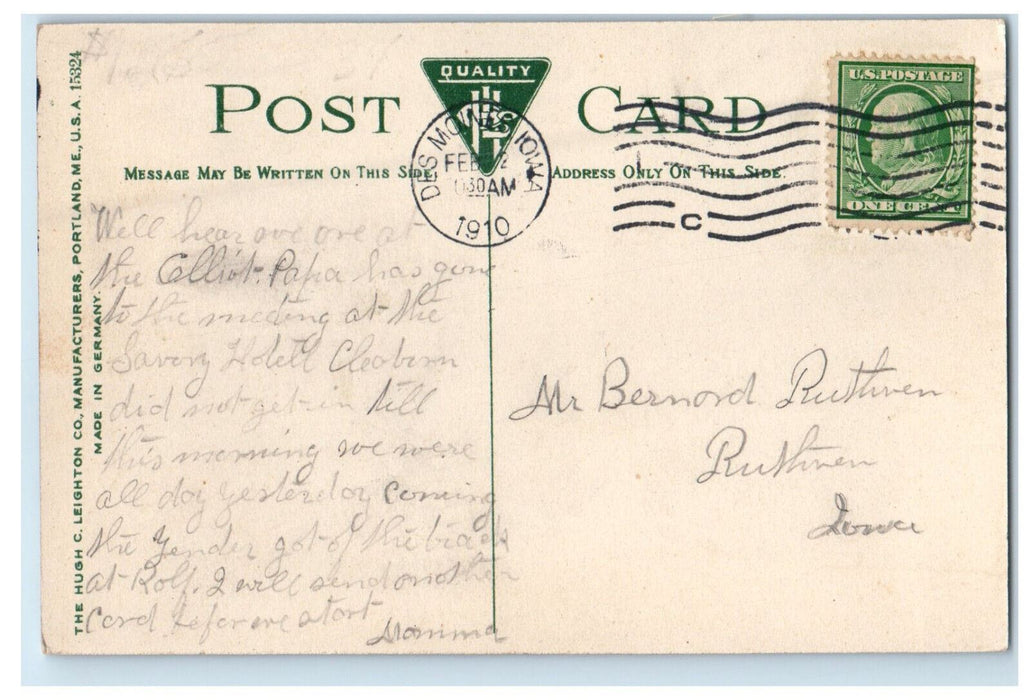 QUALITY
POST CARD
U.S.POSTAGE
ONE CENT
DES MOINES IOWA
FEB
30AM
1910
C
MESSAGE MAY BE WRITTEN ON THIS SIDE.
ADDRESS ONLY ON THIS SIDE.
THE HUGH C. LEIGHTON CO., MANUFACTURERS, PORTLAND, ME., U.S.A. 15324
MADE IN GERMANY.
Well hear we are at
the Elliot. Papa has gone
to the meeting at the
Savory Hotell
did not get in till
this morning we were
all day yesterday coming
the Tender got of the track
at Rolf. I will send another
Card before we start
Mamma
Mr Bernard Ruthven
Ruthven
Iowa